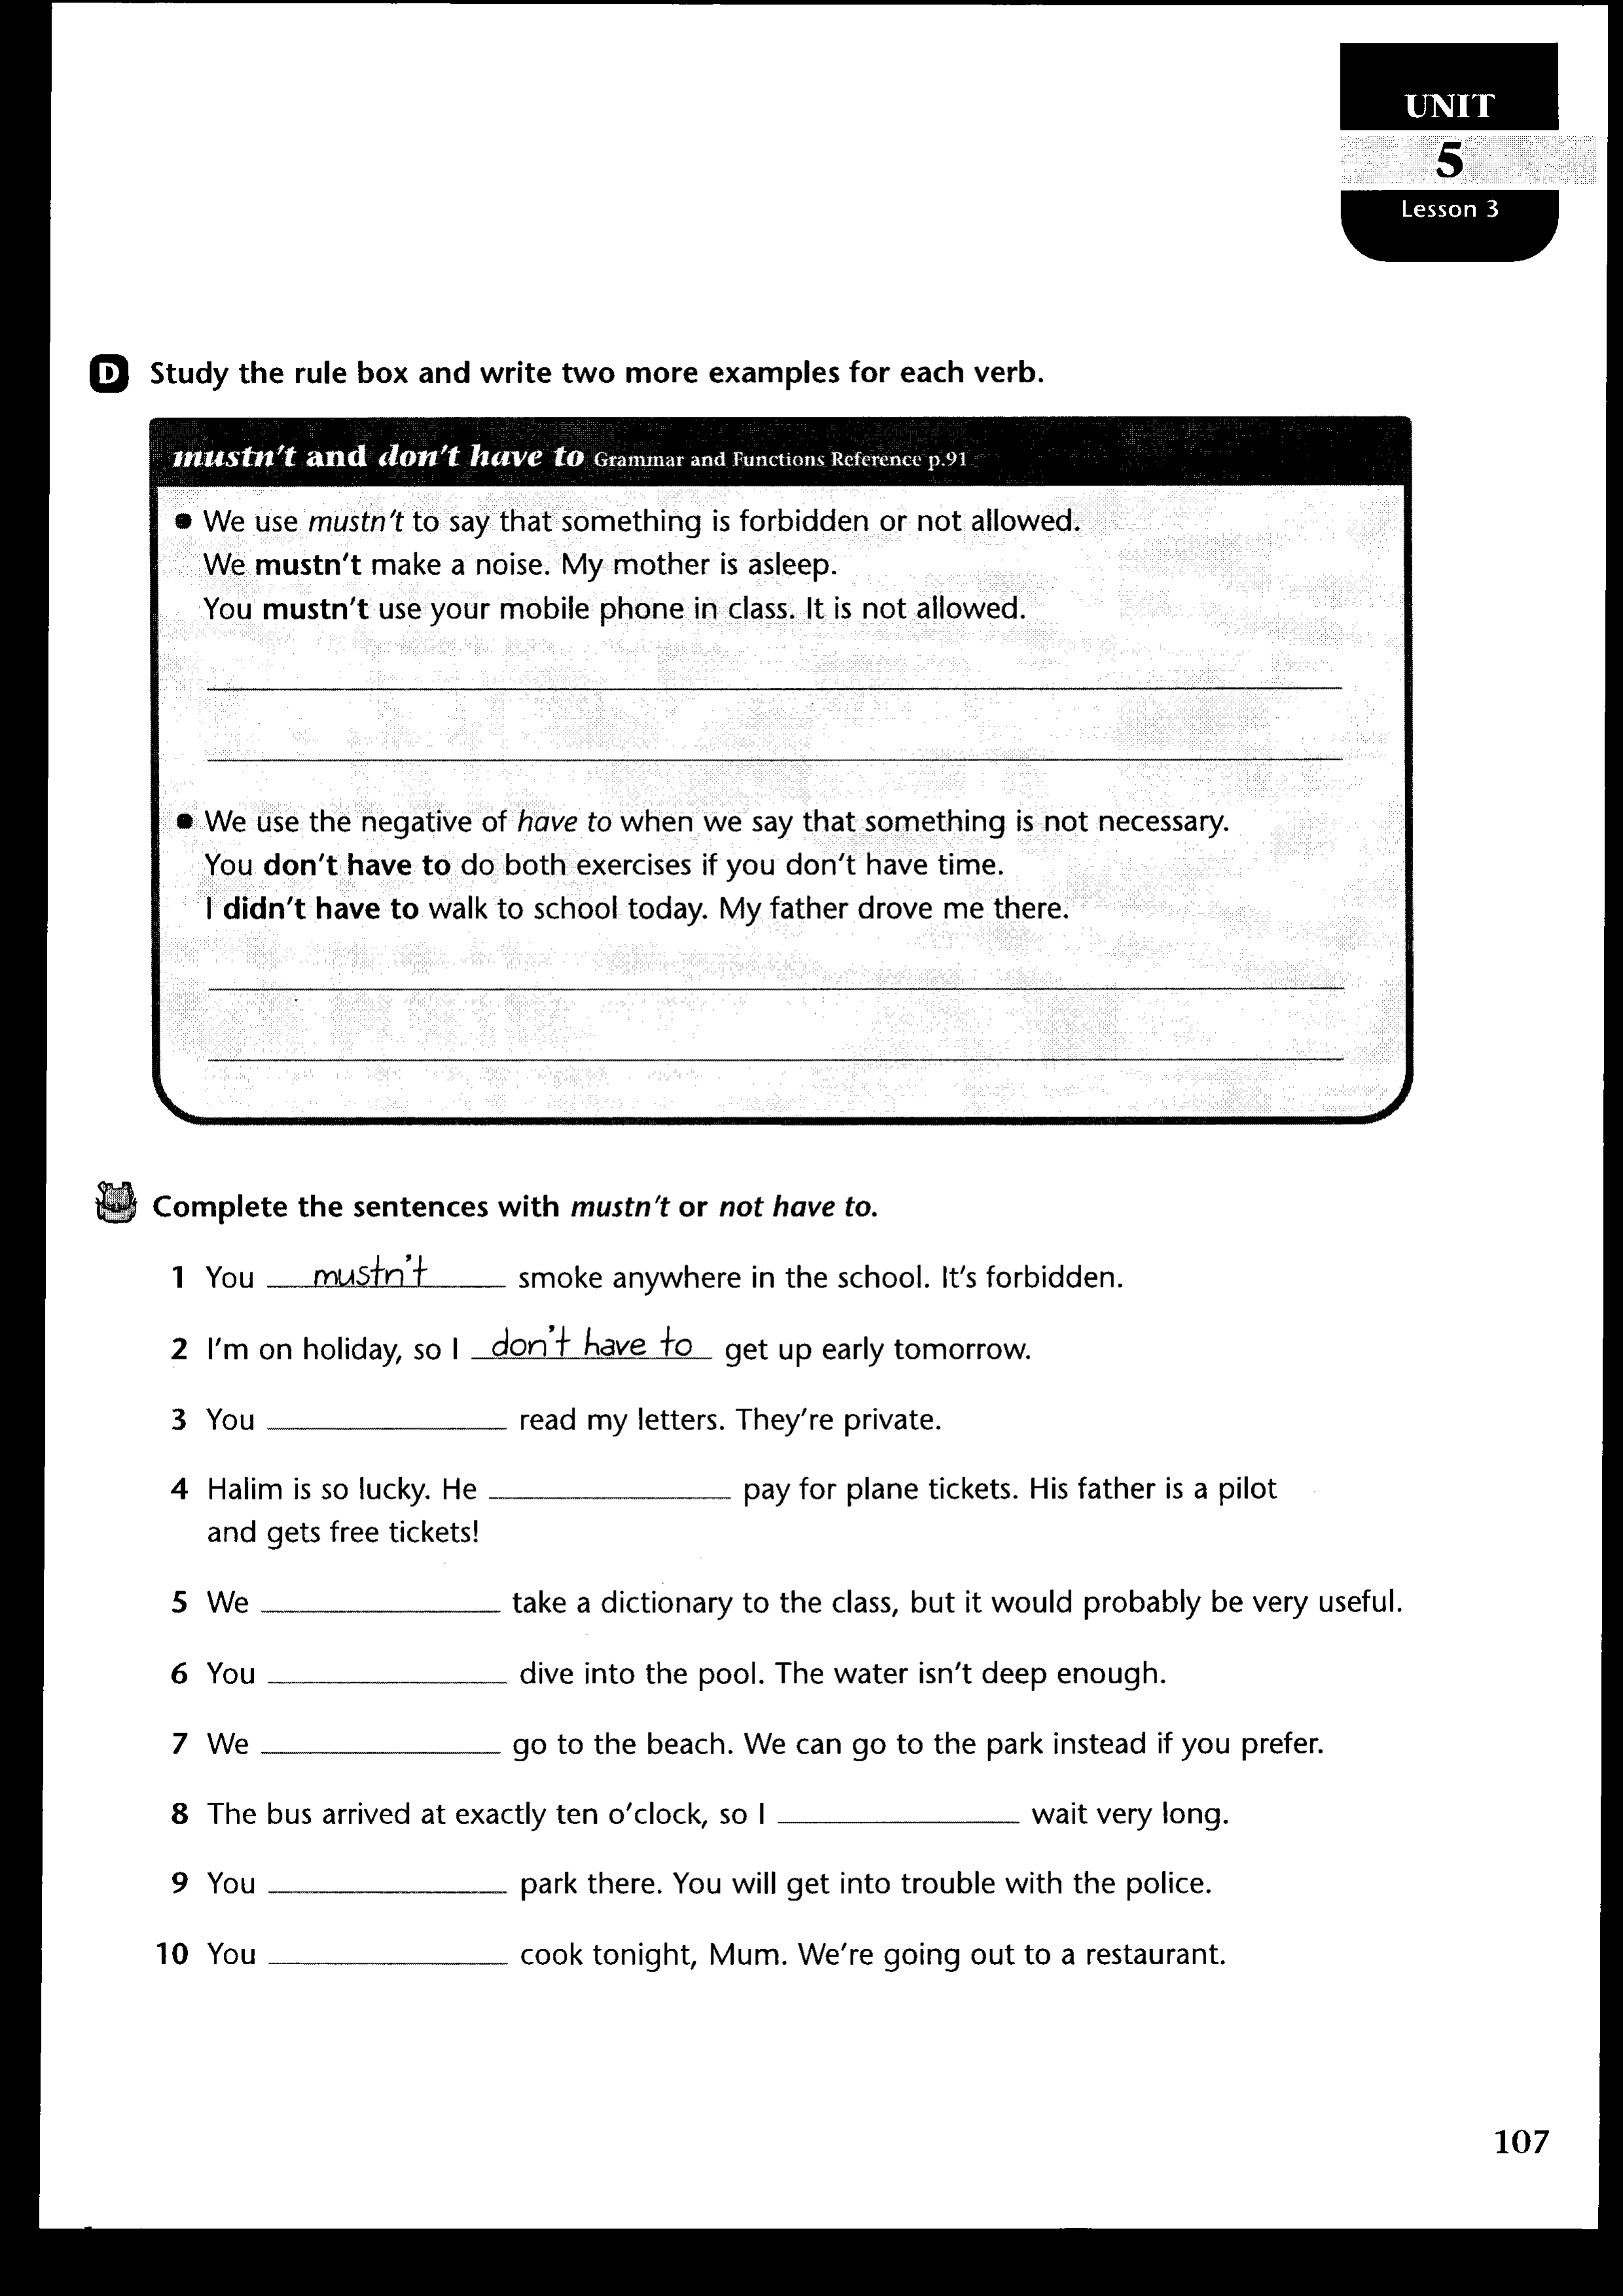 UNIT
5
Lesson 3
D Study the rule box and write two more examples for each verb.
mustn't and don't have to Grammar and Functions Reference p.91
● We use mustn't to say that something is forbidden or not allowed.
We mustn't make a noise. My mother is asleep.
You mustn't use your mobile phone in class. It is not allowed.
● We use the negative of have to when we say that something is not necessary.
You don't have to do both exercises if you don't have time.
I didn't have to walk to school today. My father drove me there.
Complete the sentences with mustn't or not have to.
1 You mustn't smoke anywhere in the school. It's forbidden.
2 I'm on holiday, so I don't have to get up early tomorrow.
3 You ____________ read my letters. They're private.
4 Halim is so lucky. He ____________ pay for plane tickets. His father is a pilot
and gets free tickets!
5 We ____________ take a dictionary to the class, but it would probably be very useful.
6 You ____________ dive into the pool. The water isn't deep enough.
7 We ____________ go to the beach. We can go to the park instead if you prefer.
8 The bus arrived at exactly ten o'clock, so I ____________ wait very long.
9 You ____________ park there. You will get into trouble with the police.
10 You ____________ cook tonight, Mum. We're going out to a restaurant.
107